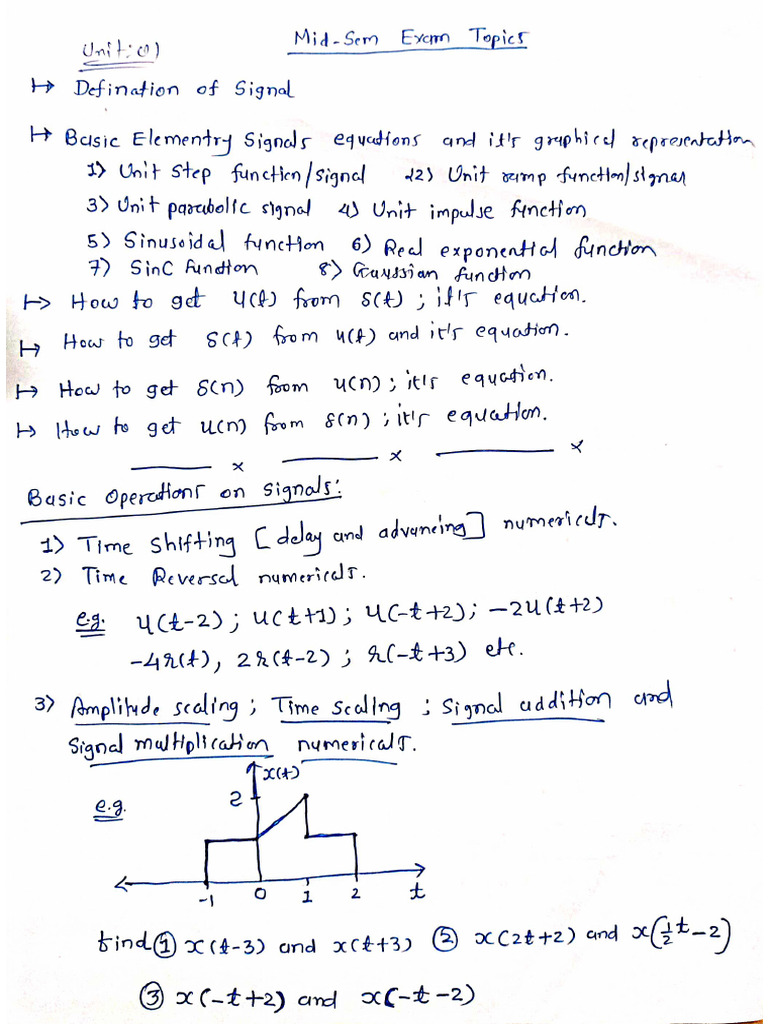 Mid-Sem Exam Topics
Unit:(1)
↦ Defination of Signal
↦ Basic Elementry Signals equations and it's graphical representation
1) Unit Step function/signal 2) Unit ramp function/signal
3) Unit parabolic signal 4) Unit impulse function
5) Sinusoidal function 6) Real exponential function
7) SinC function 8) Gaussian function
↦ How to get u(t) from δ(t) ; it's equation.
↦ How to get δ(t) from u(t) and it's equation.
↦ How to get δ(n) from u(n) ; it's equation.
↦ How to get u(n) from δ(n) ; it's equation.
x x x
Basic Operations on Signals:
1) Time Shifting [delay and advancing] numericals.
2) Time Reversal numericals.
e.g. u(t-2) ; u(t+1) ; u(-t+2) ; -2u(t+2)
-4r(t), 2r(t-2) ; r(-t+3) etc.
3) Amplitude scaling ; Time scaling ; Signal addition and
Signal multiplication numericals.
x(t)
2
e.g.
-1 0 1 2 t
find ① x(t-3) and x(t+3) ② x(2t+2) and x(1/2 t-2)
③ x(-t+2) and x(-t-2)